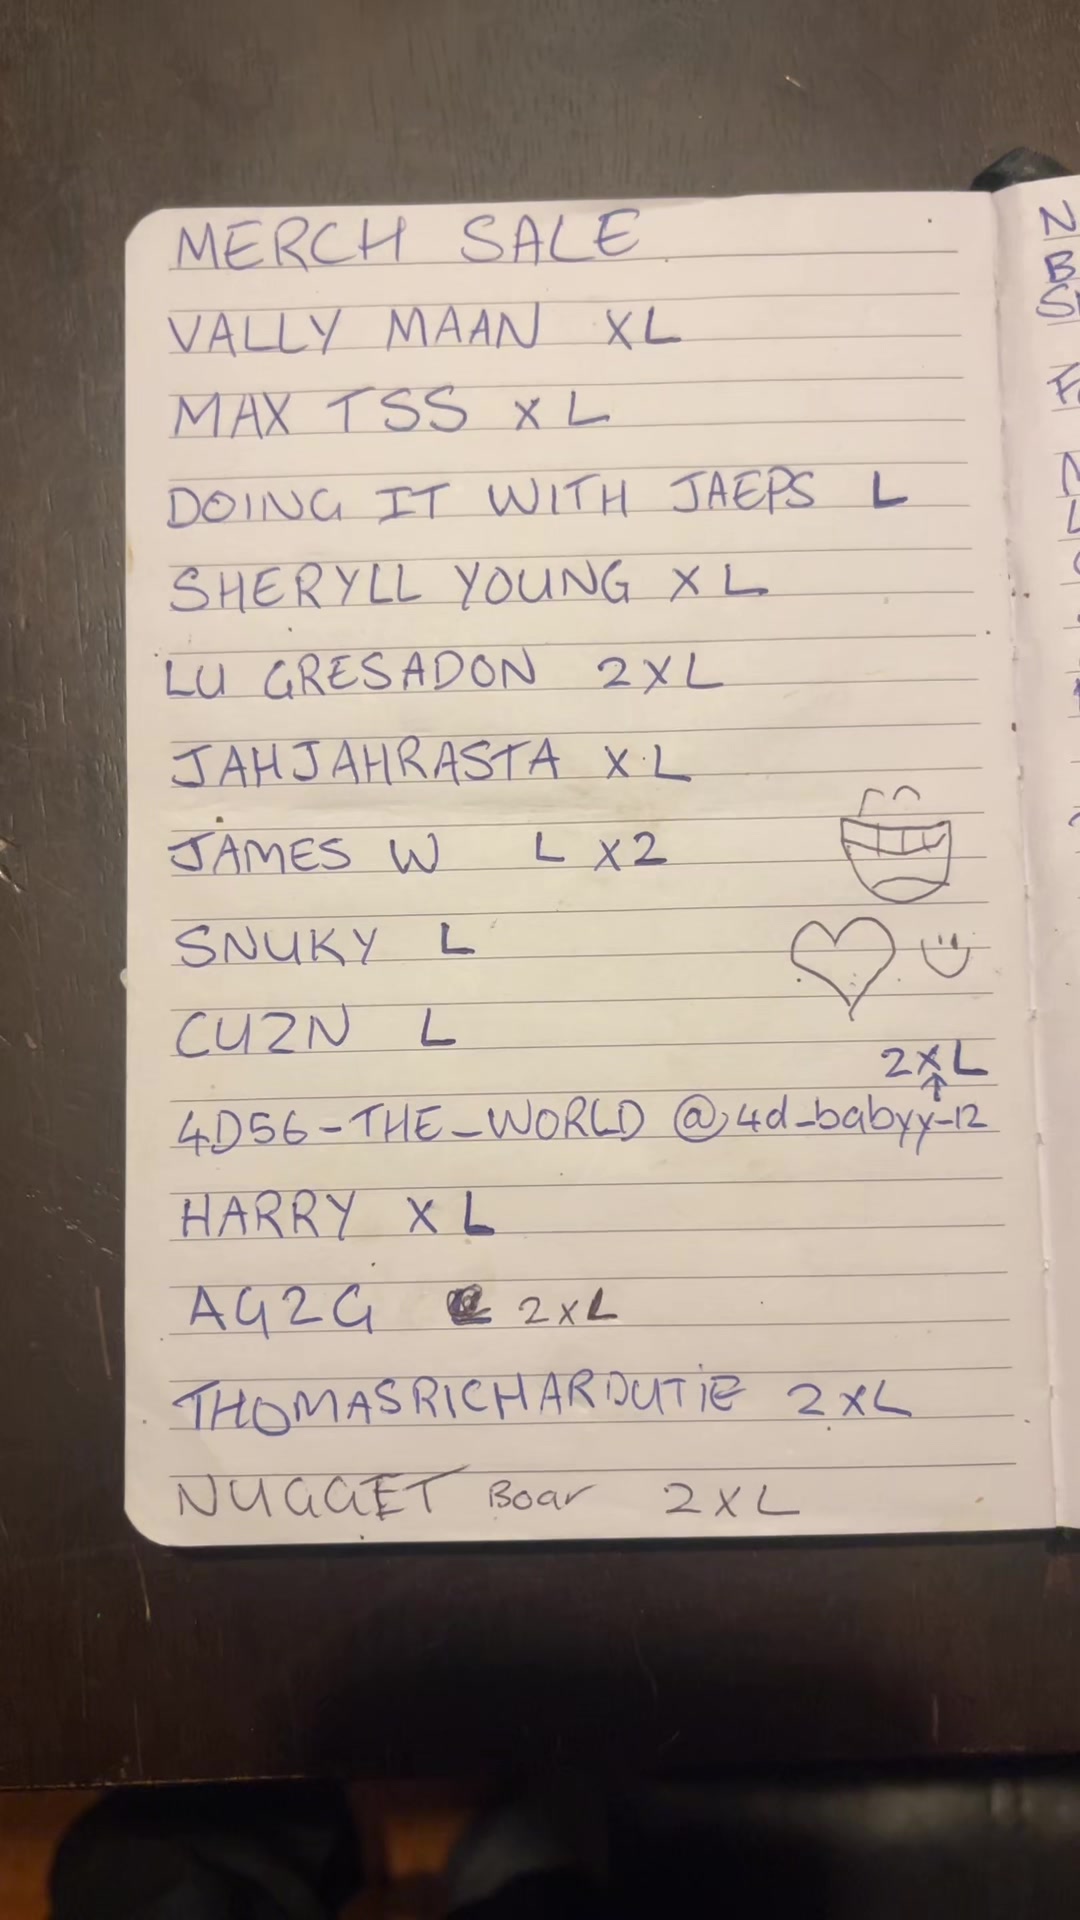 MERCH SALE
VALLY MAAN XL
MAX TSS XL
DOING IT WITH JAEPS L
SHERYLL YOUNG XL
LU GRESADON 2XL
JAHJAHRASTA XL
JAMES W L X2
SNUKY L
CUZN L
2XL
4D56-THE_WORLD @4d_babyy-12
HARRY XL
AG2G 2XL
THOMASRICHARDUTIE 2XL
NUGGET Boar 2XL
N
B